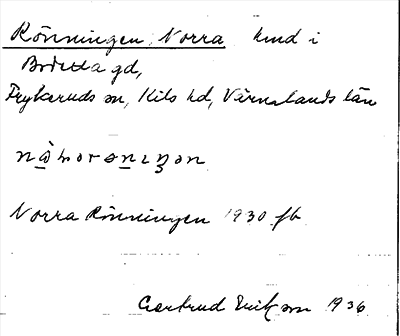 Rönningen, Norra hmd i
gd,
Frykeruds sn, Kils hd, Värmlands län
Norra Rönningen 1930 fb
Gertrud Ericson 1936